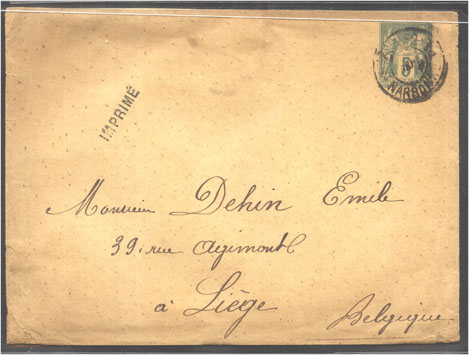 IMPRIMÉ
5
NARBONNE
Monsieur Dehin Emile
39. rue Agimont
à Liège
Belgique